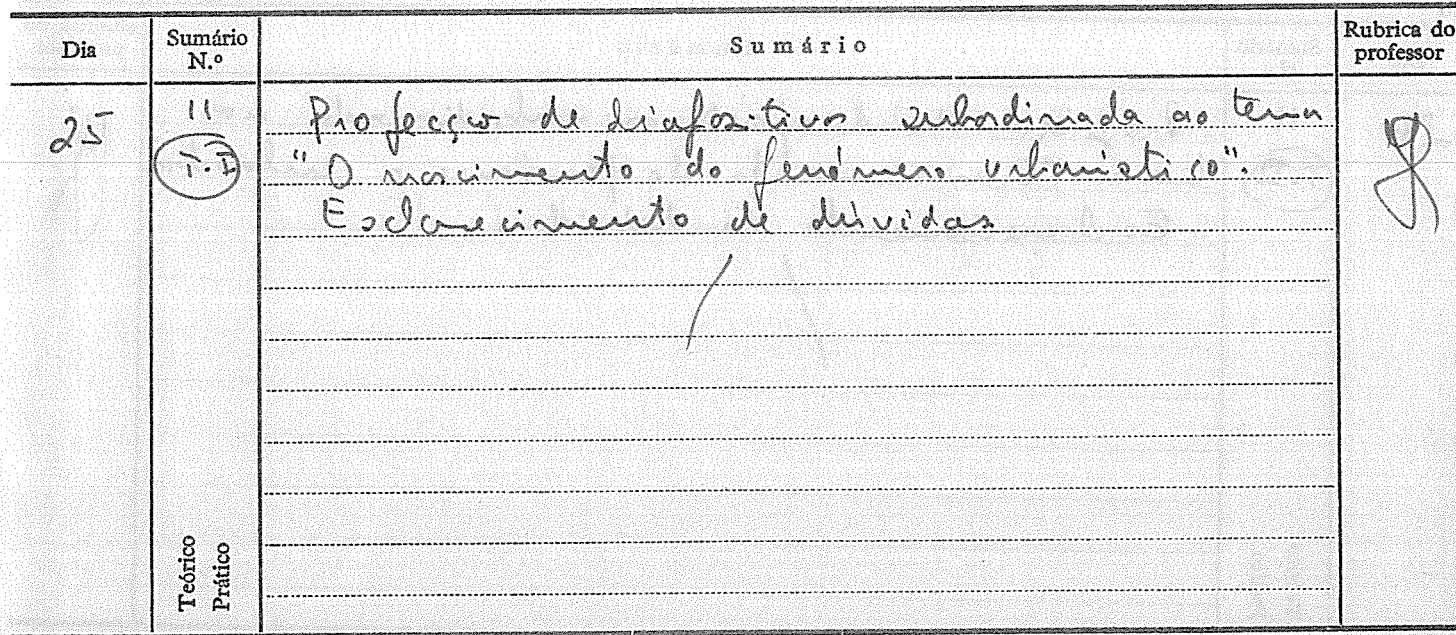 Dia
Sumário N.º
Sumário
Rubrica do professor
25
11
Projecção de diapositivos subordinada ao tema
"O nascimento do fenómeno urbanístico".
Esclarecimento de dúvidas
Teórico
Prático